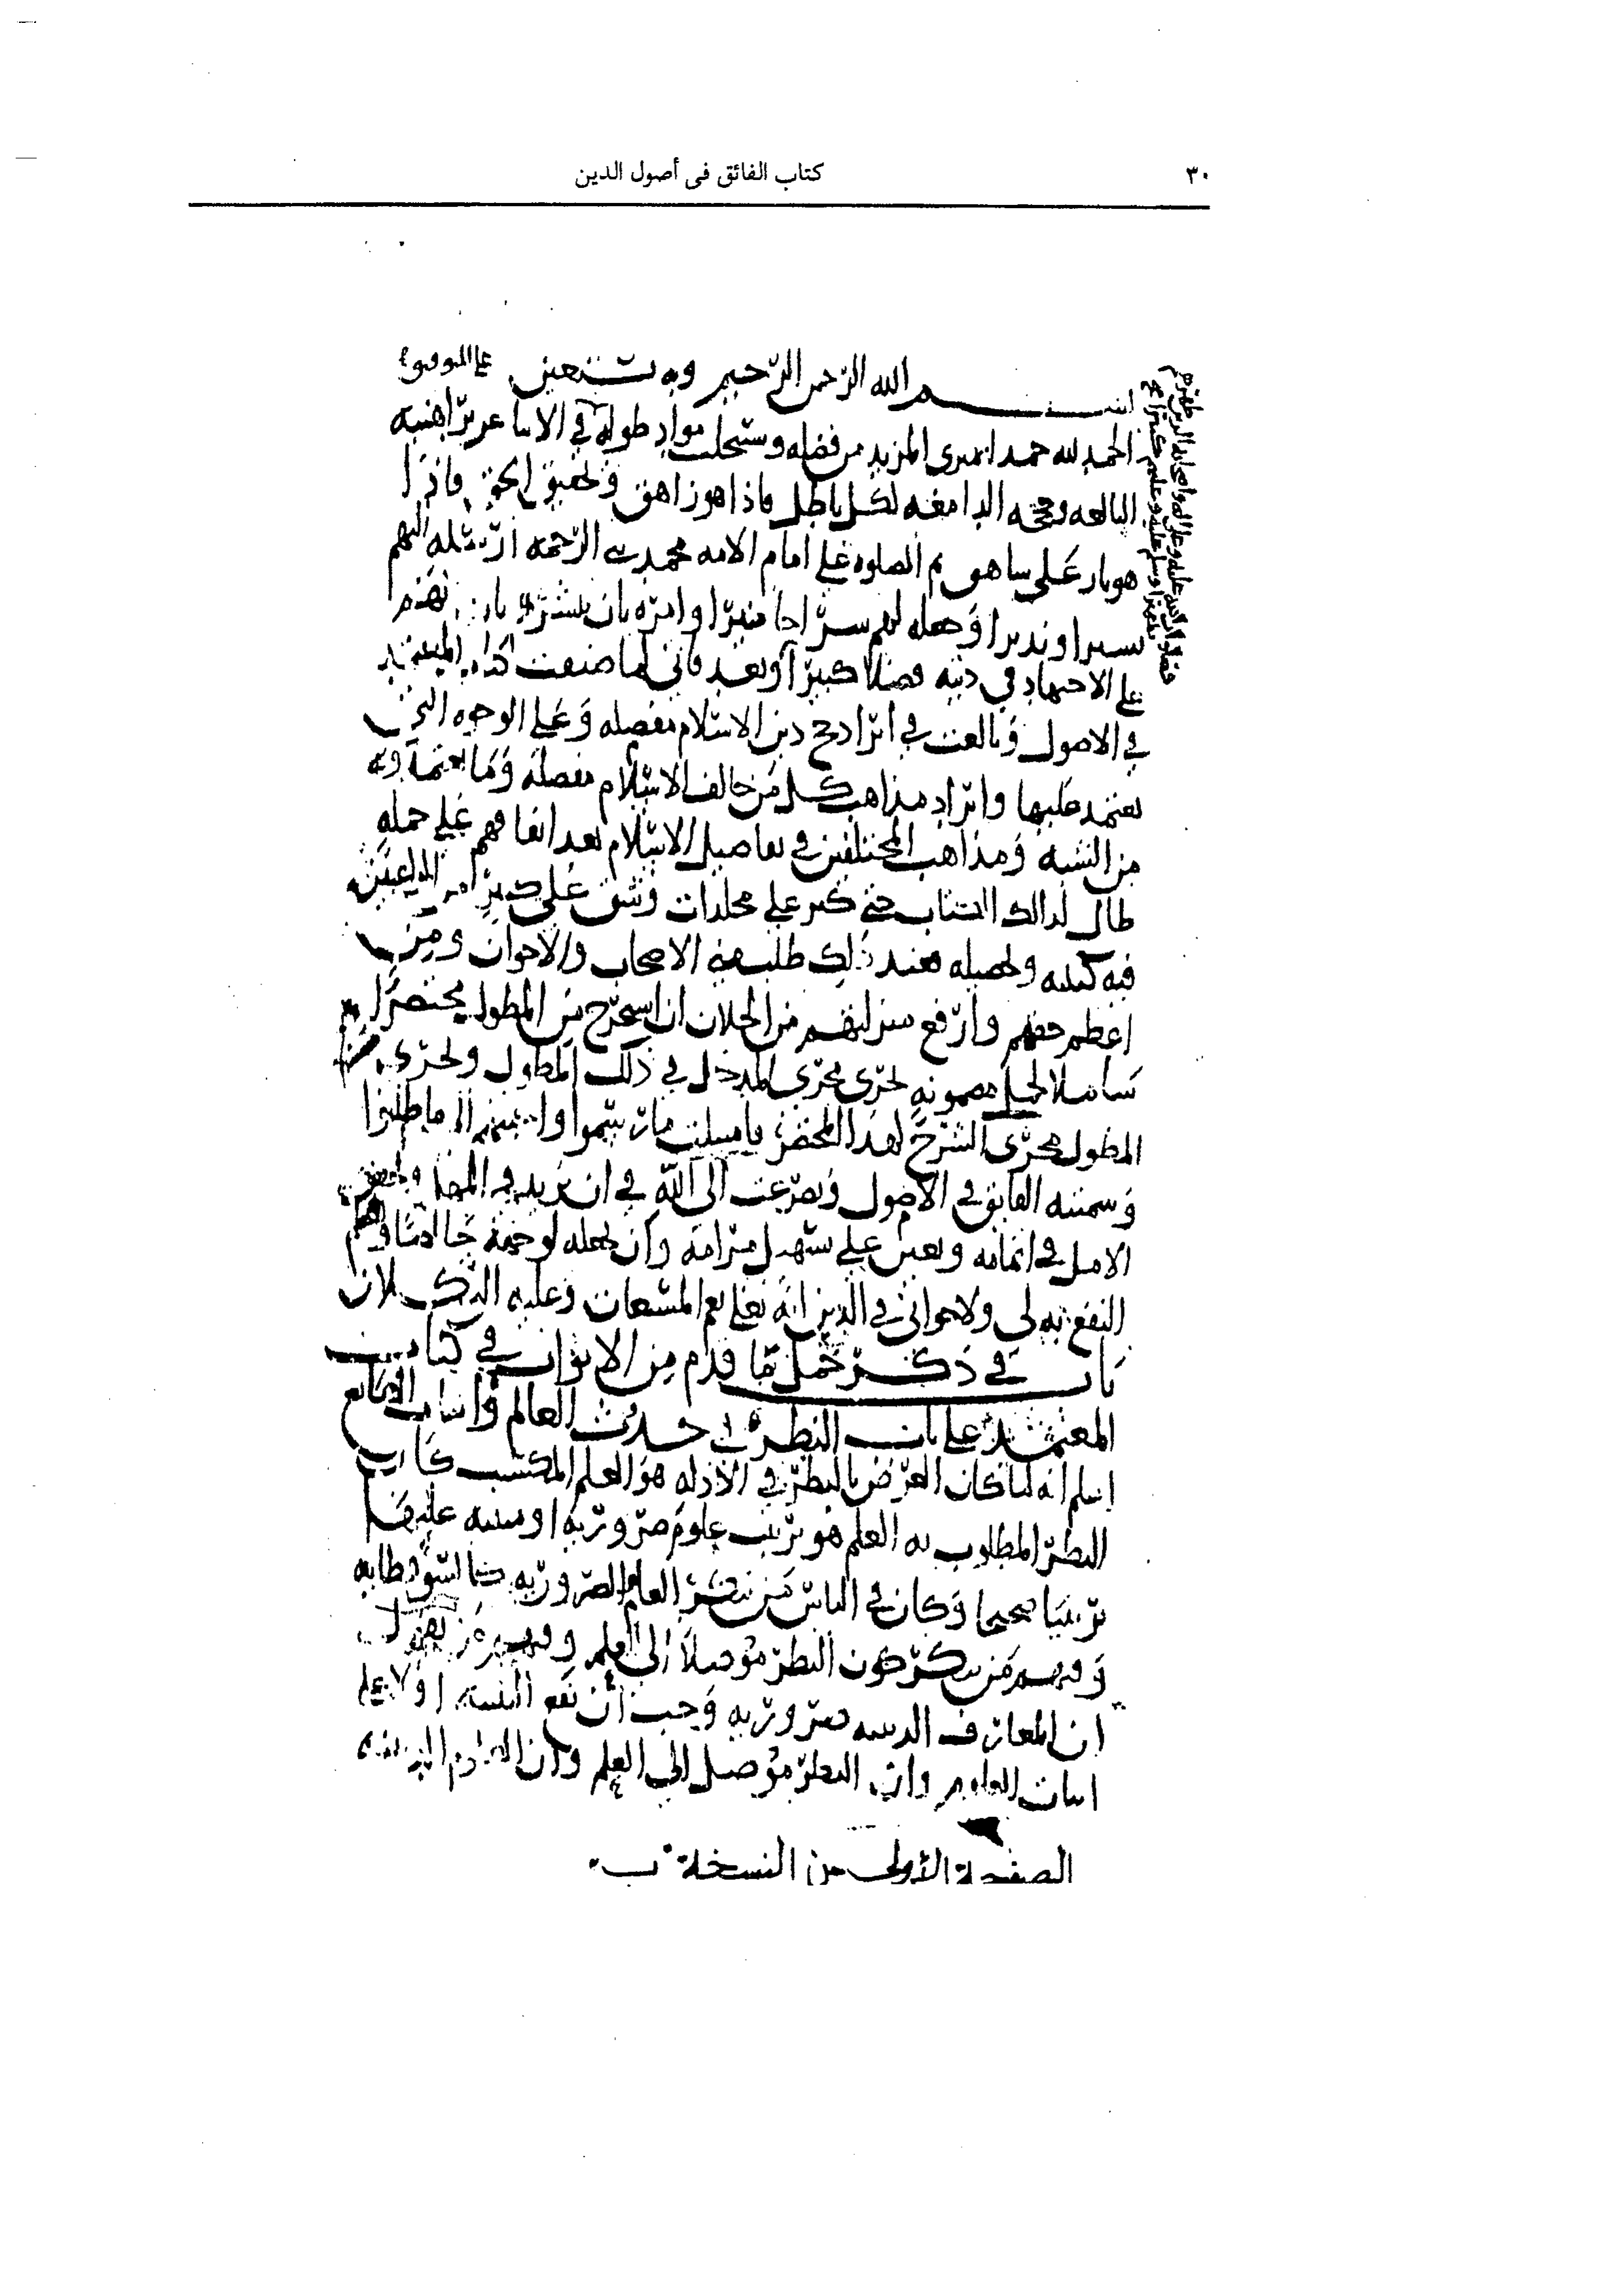 ٣٠
كتاب الفائق فى أصول الدين
بسم الله الرحمن الرحيم وبه نستعين
الحمد لله حمدا يمترى المزيد من فضله ويستجلب مواد طوله في الابانة عن براهينه
البالغه وحججه الدامغه لكل باطل فاذا هو زاهق وتحقيق الحق فاذا
هو بار على ساهق ثم الصلوه على امام الامه محمد نبي الرحمه ارسله اليهم
بشيرا ونذيرا وجعله لهم سراجا منيرا وامره بان يبشرهم بان لهم
على الاجتهاد في دينه فضلا كبيرا وبعد فانى لما صنفت كتاب المعتمد
في الاصول وبالغت في ايراد حجج دين الاسلام مفصله وعلى الوجوه التي
يعتمد عليها وايراد مذاهب كل من خالف الاسلام مفصلة وما يعتمدونه
من الشبه ومذاهب المختلفين في تفاصيل الاسلام بعد اتفاقهم على جمله
طال لذلك الكتاب حتى كبر على مجلدات وشق على كثير من الراغبين
فيه كتبه وتحصيله فعند ذلك طلب منى الاصحاب والاخوان ومن
اعظم حقهم وارفع منزلتهم من الخلان ان استخرج من المطول مختصرا
شاملا لجمل مضمونه يجرى مجرى المدخل في ذلك المطول ويجرى
المطول مجرى الشرح لهذا المختصر فامتثلت ما رسموا واجبتهم الى ما طلبوا
وسميته الفائق في الاصول وتضرعت الى الله في ان يزيد في المهل ويحقق
الامل في اتمامه ويعين على تسهيل مرامه وان يجعله لوجهه خالصا
النفع به لي ولاخوانى في الدين انه تعلى نعم المستعان وعليه التكلان
باب في ذكر جمل ما قدم من الابواب في كتاب
المعتمد على باب النظر في حدوث العالم واثبات الصانع
اعلم انه لما كان الغرض بالنظر في الادله هو العلم المكتسب كان
النظر المطلوب به العلم هو ترتيب علوم ضروريه او مبنيه عليها
ترتيبا صحيحا وكان في الناس من ينكر العلوم الضروريه كالسوفسطائيه
وفيهم من ينكر كون النظر موصلا الى العلم وفيهم من يقول
ان المعارف الدينيه ضروريه وجب ان نقدم اولا على
اثبات العلوم وان النظر موصل الى العلم وان العلوم الدينيه
الصفحة الأولى من النسخة "ب"